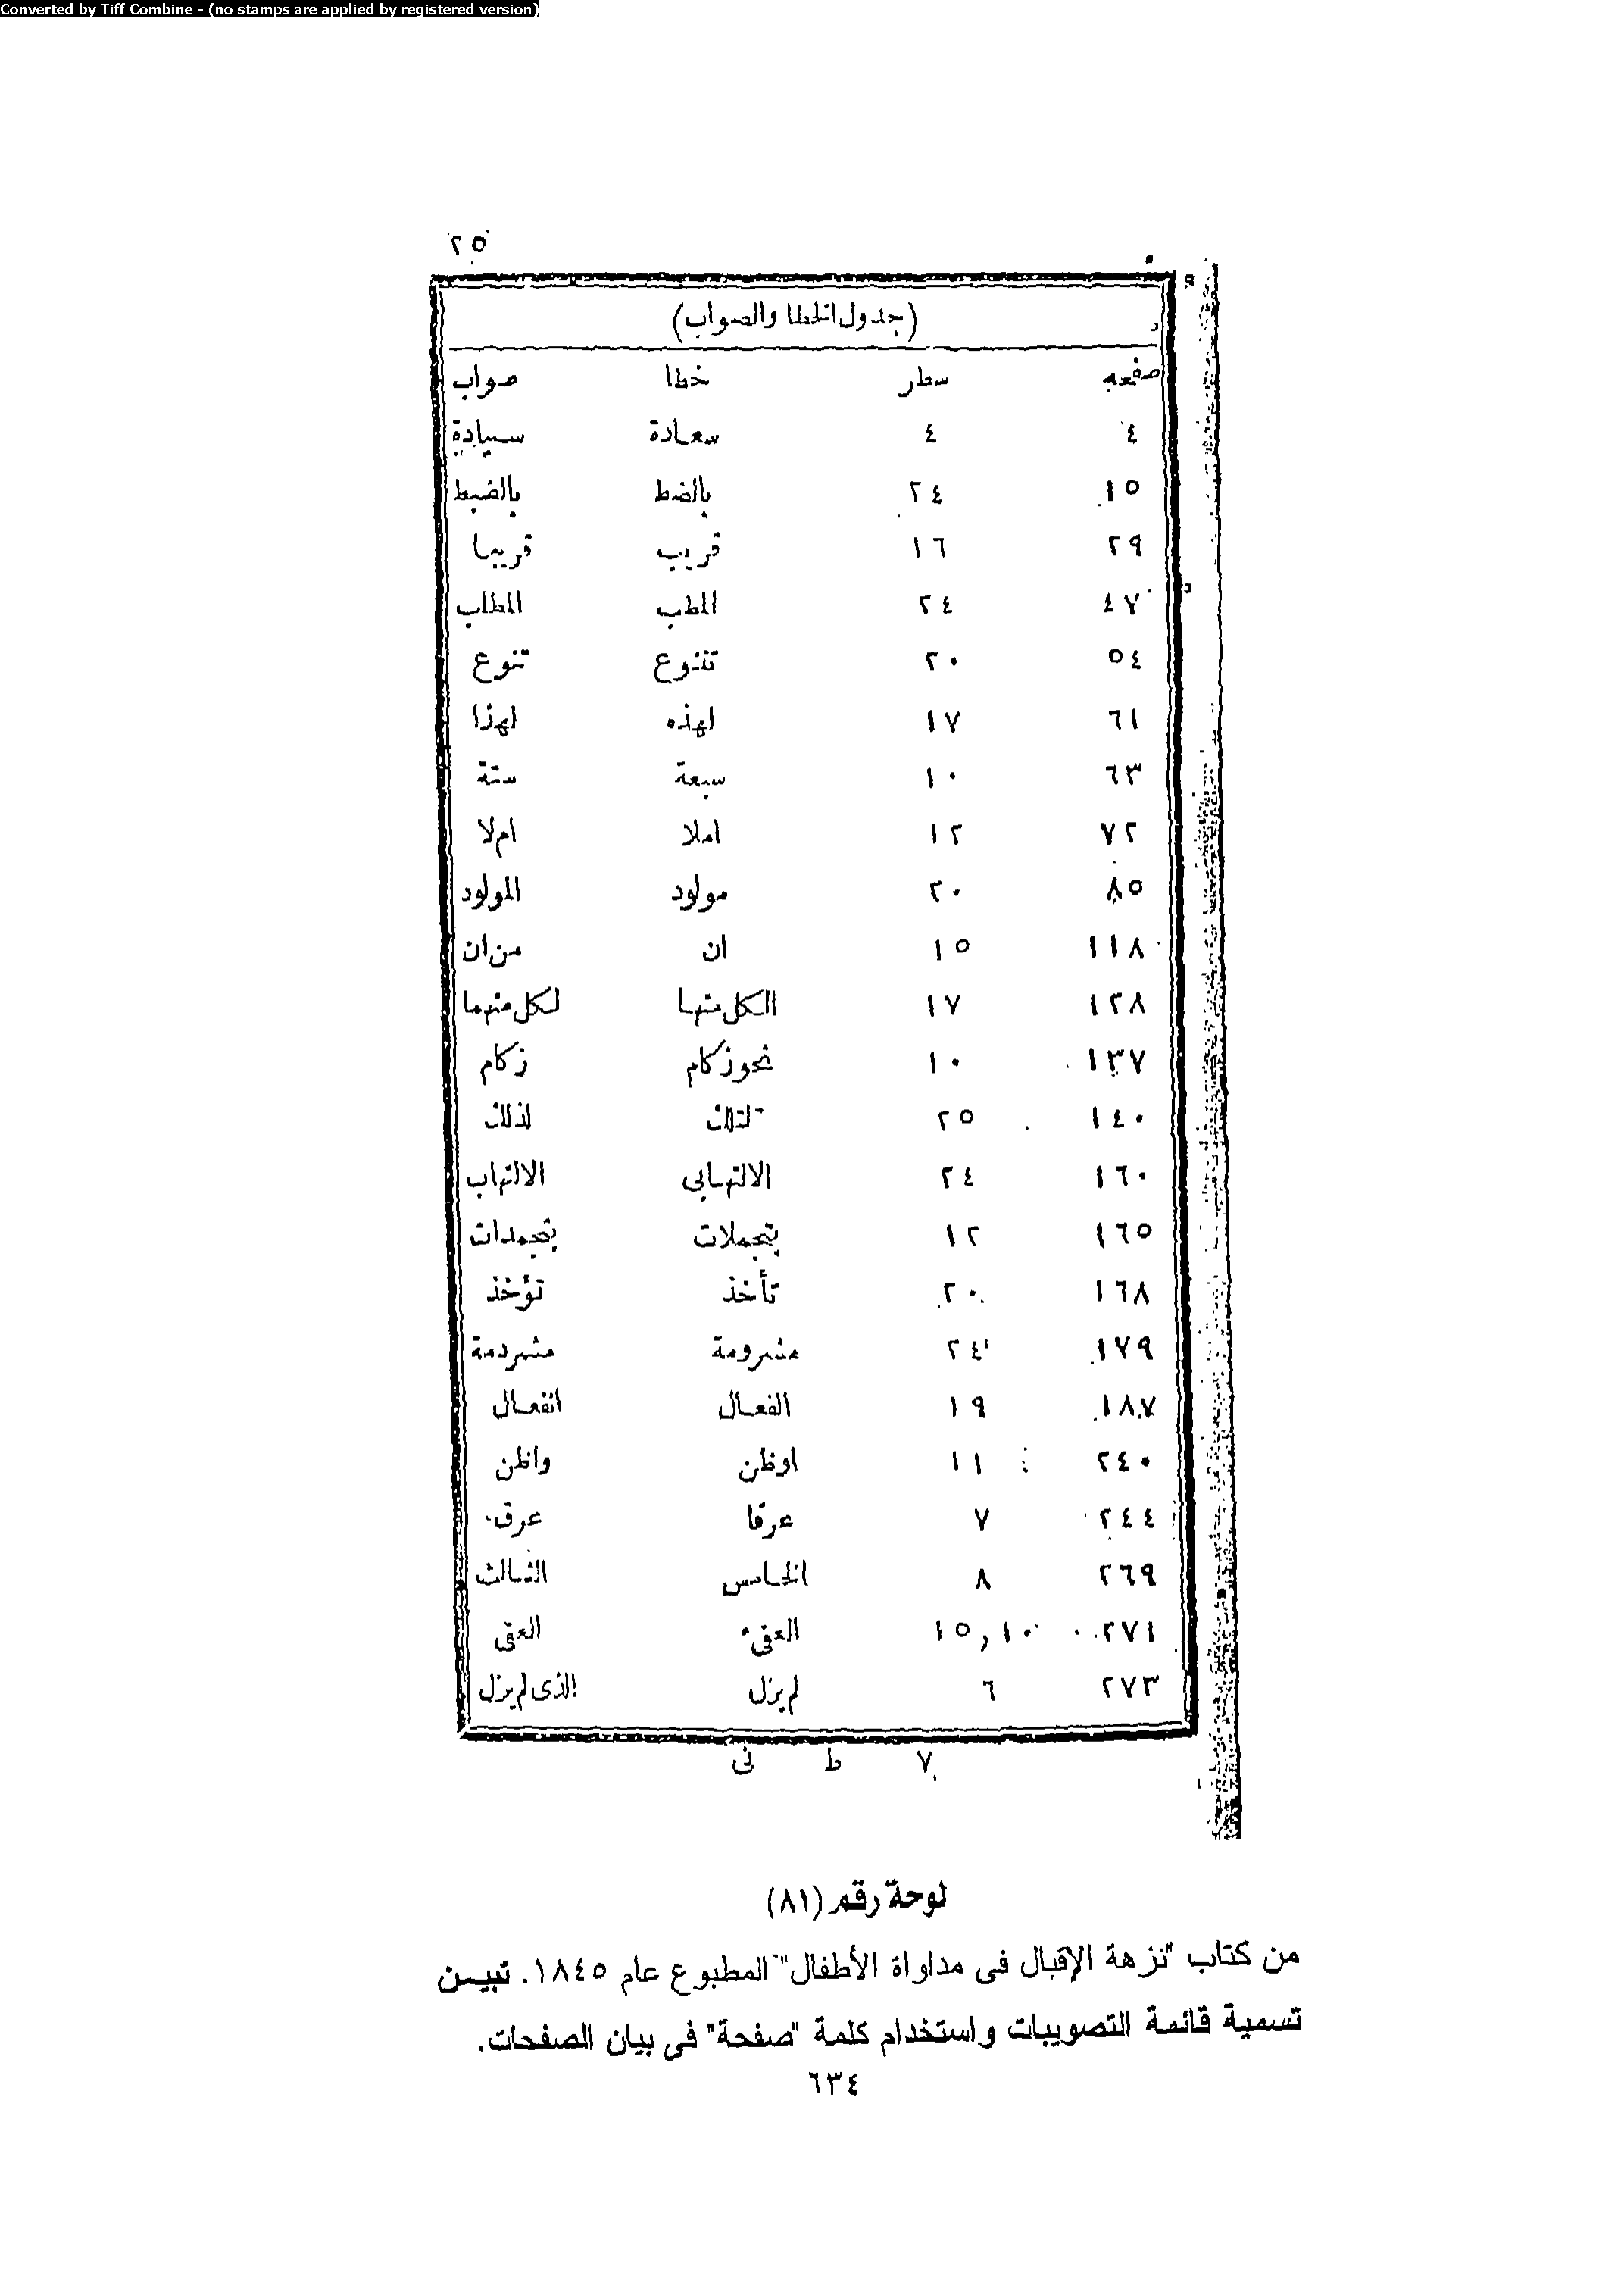 Converted by Tiff Combine - (no stamps are applied by registered version)
٢٥
(جدول الخطا والصواب)
صفحه سطر خطا صواب
٤ ٤ سعادة سيادة
١٥ ٢٤ بالضط بالضبط
٢٩ ١٦ قريب قريبا
٤٧ ٢٤ المطب المطلب
٥٤ ٢٠ تتنوع تنوع
٦١ ١٧ لهذه لهذا
٦٣ ١٠ سبعة ستة
٧٢ ١٢ املا ام لا
٨٥ ٢٠ مولود المولود
١١٨ ١٥ ان من ان
١٢٨ ١٧ الكل منها لكل منهما
١٣٧ ١٠ نحو زكام زكام
١٤٠ ٢٥ لتلك لذلك
١٦٠ ٢٤ الالتهابى الالتهاب
١٦٥ ١٢ بتجملات بتجمدات
١٦٨ ٢٠ تأخذ تؤخذ
١٧٩ ٢٤ مشرومة مشردمة
١٨٧ ١٩ الفعال انفعال
٢٤٠ ١١ اوظن واظن
٢٤٤ ٧ عرقا عرق
٢٦٩ ٨ الخامس الثالث
٢٧١ ١٠,١٥ العقىء العقى
٢٧٣ ٦ لم يزل الذى لم يزل
٧ ط نى
لوحة رقم (٨١)
من كتاب "نزهة الإقبال فى مداواة الأطفال" المطبوع عام ١٨٤٥. تبيـن
تسمية قائمة التصويبات واستخدام كلمة "صفحة" فى بيان الصفحات.
٦٣٤